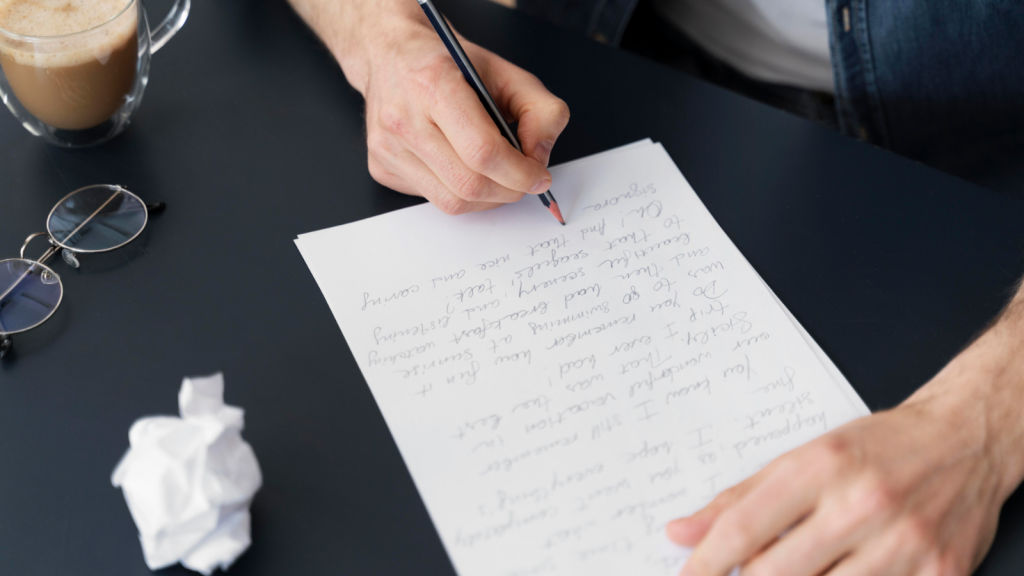 time
I wonder what
happened as you went completely
silent. I hope everything's
fine.
You know I still remember
wonderful vacation in
Sicily. That was the best
trip I ever had!
Do you remember how fun it
was to go swimming at sunrise
and then had breakfast watching
beautiful scenery, and listening
to that seagulls' talk?
Oh! And that nice and caring
signora